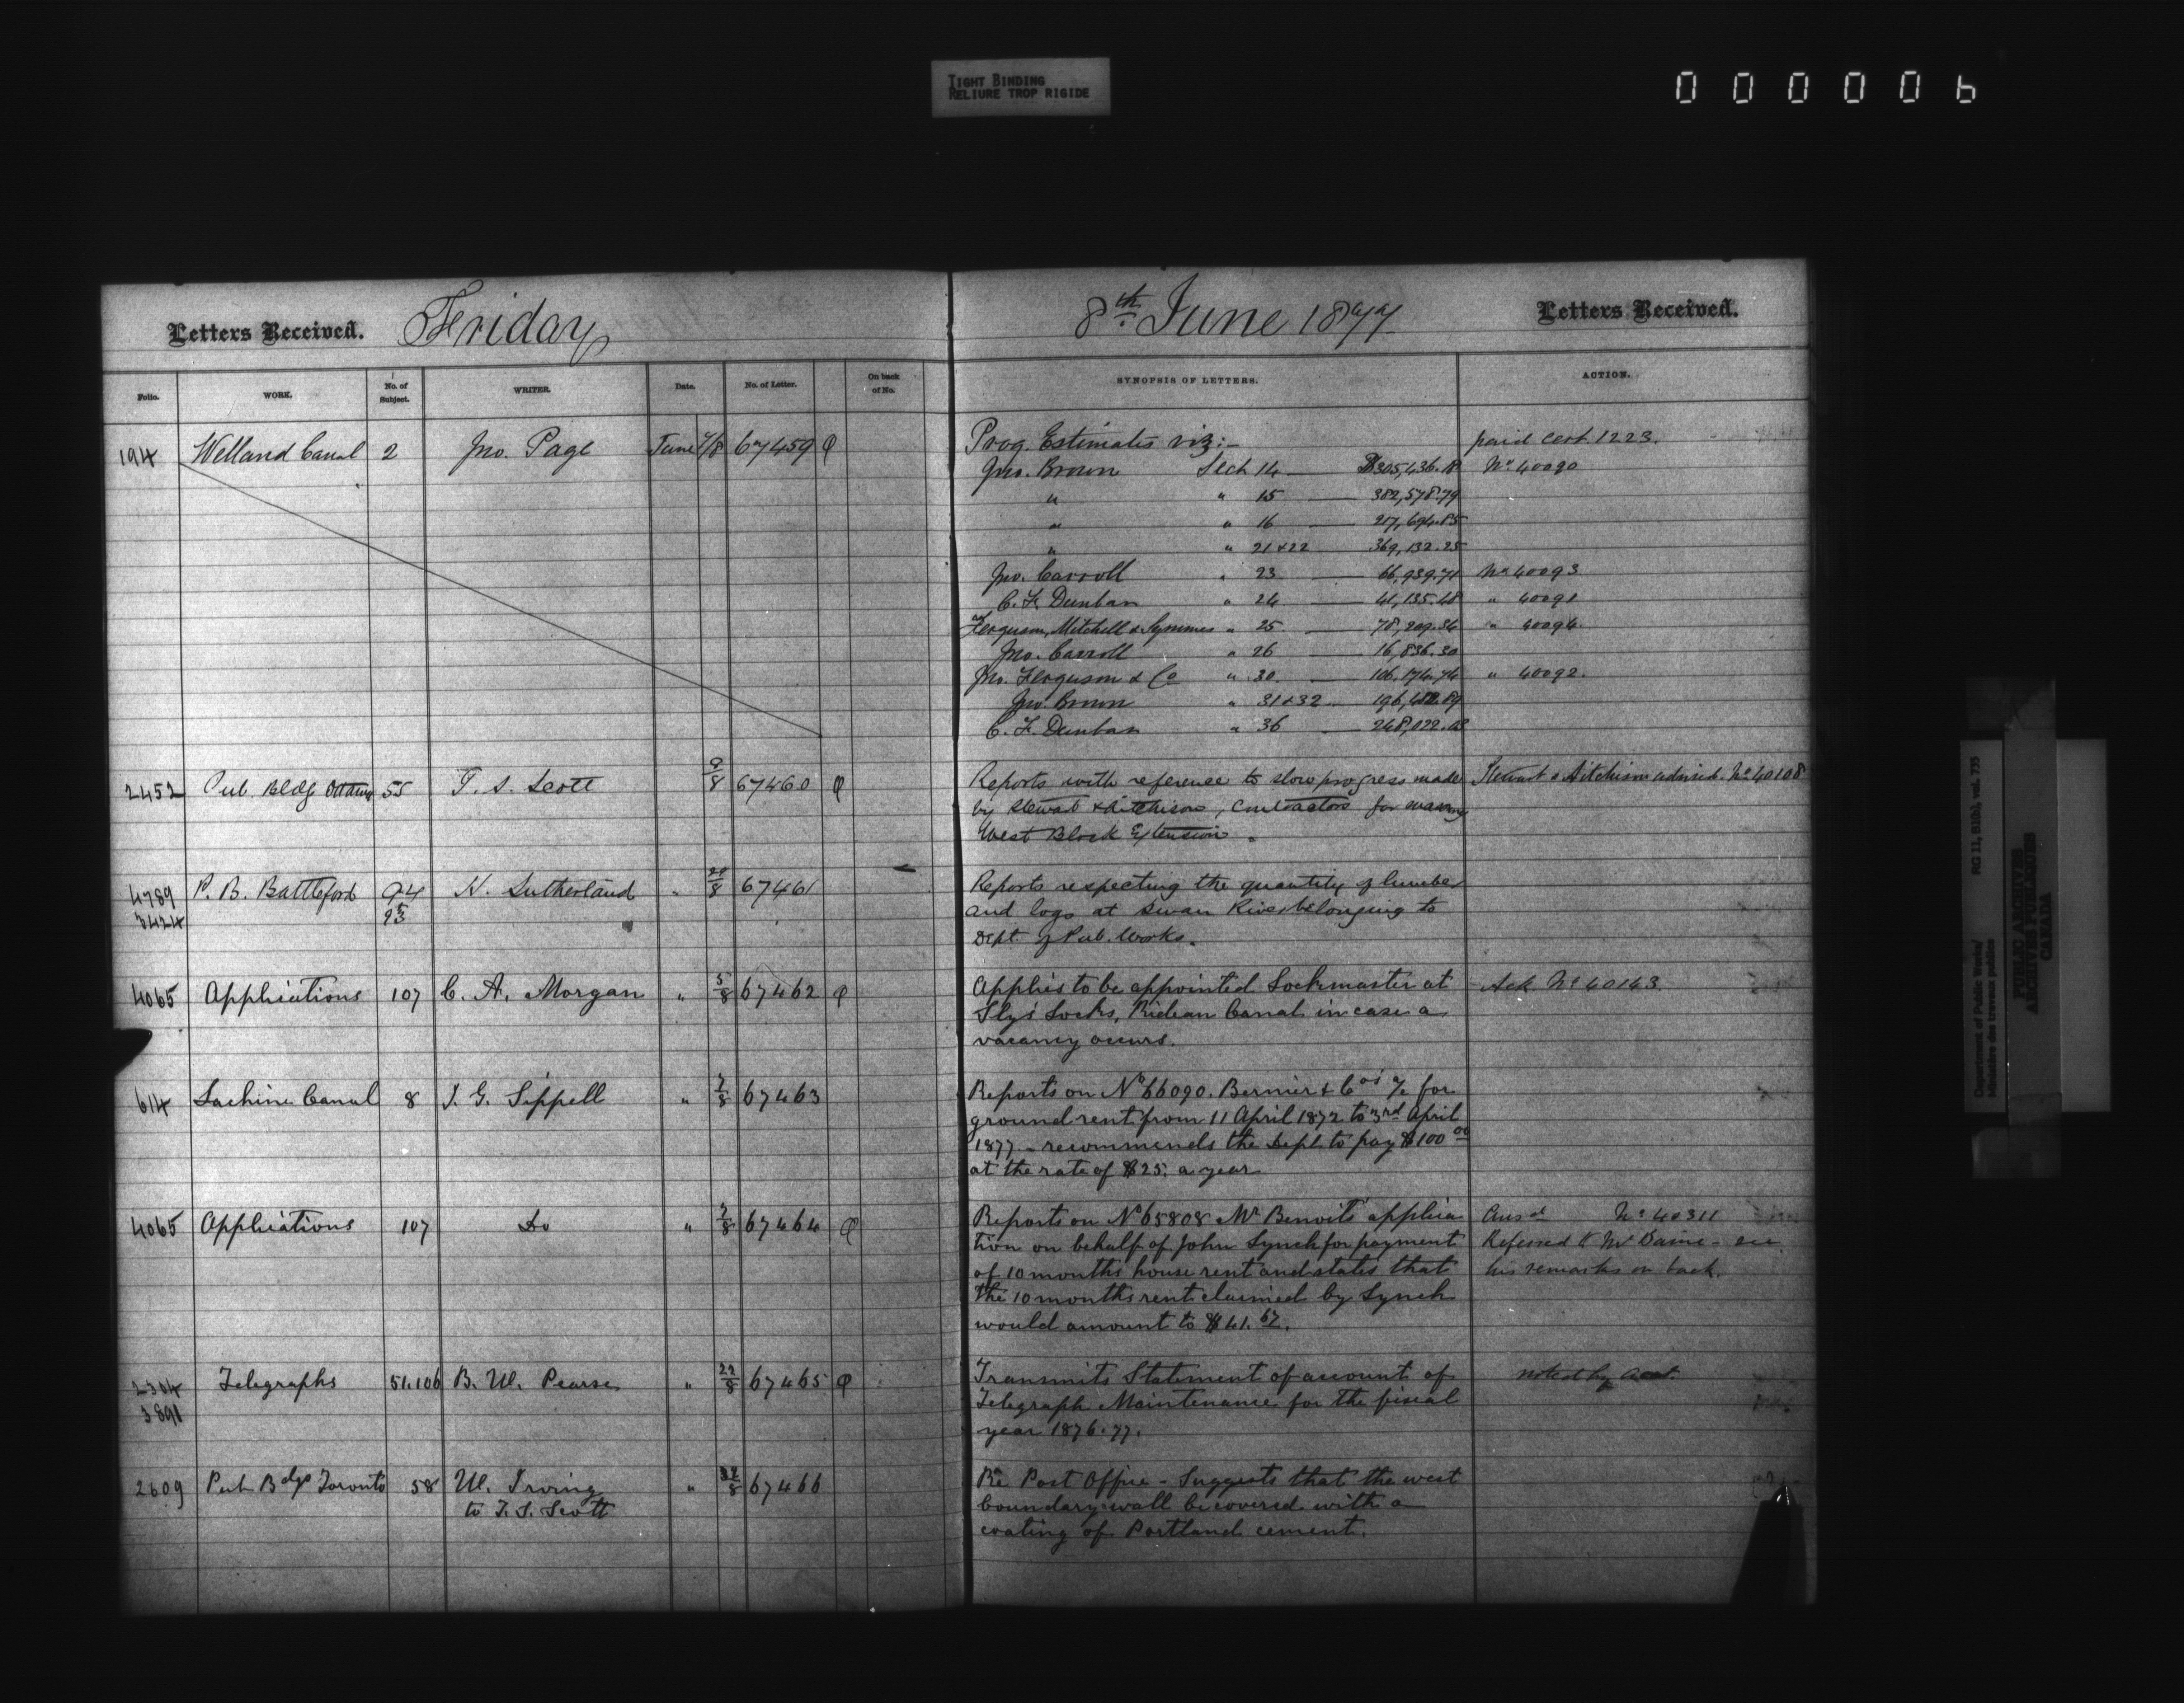 TIGHT BINDING
RELIURE TROP RIGIDE
000006
Letters Received. Friday 8th June 1877 Letters Received.
Folio. WORK. No. of Subject. WRITER. Date. No. of Letter. On back of No. SYNOPSIS OF LETTERS. ACTION.
194 Welland Canal 2 Jno. Page June 7/8 67459 Prog. Estimates viz:- paid Cert. 1223.
Jno. Brown Sect 14 — $305,436.18 No 40090
" " 15 — 382,578.79
" " 16 — 217,694.85
" " 21 & 22 — 369,132.25
Jno. Carroll " 23 — 66,939.71 No 40093
C. F. Dunbar " 24 — 41,135.48 " 40091
Ferguson, Mitchell & Symmes " 25 — 78,209.34 " 40094
Jno. Carroll " 26 — 16,836.30
Jno. Ferguson & Co " 30. — 106,174.74 " 40092.
Jno. Brown " 31 & 32 —
C. F. Dunbar " 36 — 248,022.03
2452 Pub. Bldg Ottawa 55 T. S. Scott 67460 Reports with reference to slow progress made Stewart & Aitchison advised. No 40108
by Stewart & Aitchison, Contractors for masonry
West Block Extension.
4789 P. B. Battleford 94 H. Sutherland " 67461 Reports respecting the quantity of lumber
3424 95 and logs at Swan River belonging to
Dept. of Pub. Works.
4065 Applications 107 C. A. Morgan " 5/8 67462 Applies to be appointed Lockmaster at Ack No 40143.
Sly's Locks, Rideau Canal in case a
vacancy occurs.
614 Lachine Canal 8 J. G. Sippell " 7/8 67463 Reports on No 66090. Bernier & Cos' a/c for
ground rent from 11 April 1872 to 3rd April
1877 - recommends the Dept. to pay $100 00
at the rate of $25. a year
4065 Applications 107 Do " 7/8 67464 Reports on No 65808 Mr Benoit's applica Ansd No 40311
tion on behalf of John Lynch for payment Referred to Mr Baine - see
of 10 months house rent and states that his remarks on back.
the 10 months rent claimed by Lynch
would amount to $41.67.
2304 Telegraphs 51.106 B. W. Pearse " 22/8 67465 Transmits Statement of account of noted by Acct.
3891 Telegraph Maintenance for the fiscal
year 1876.77.
2609 Pub Bdgs Toronto 58 W. Irving " 67466 Re Post Office - Suggests that the west
to T. S. Scott boundary wall be covered with a
coating of Portland cement.
Department of Public Works/
Ministère des travaux publics
RG 11, B1(b), vol. 735
PUBLIC ARCHIVES
ARCHIVES PUBLIQUES
CANADA